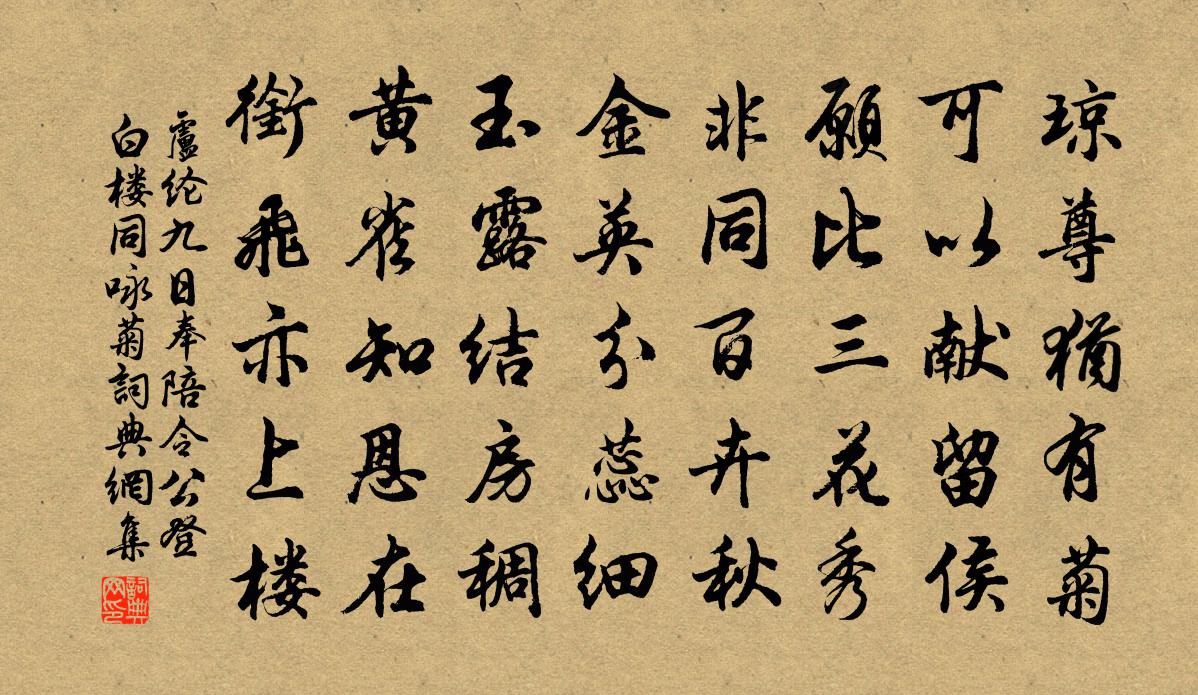 琼尊猶有菊
可以献留侯
願比三花秀
非同百卉秋
金英分蕊细
玉露结房稠
黄雀知恩在
銜飛亦上楼
盧纶九日奉陪令公登
白楼同咏菊詞典網集
詞典网印